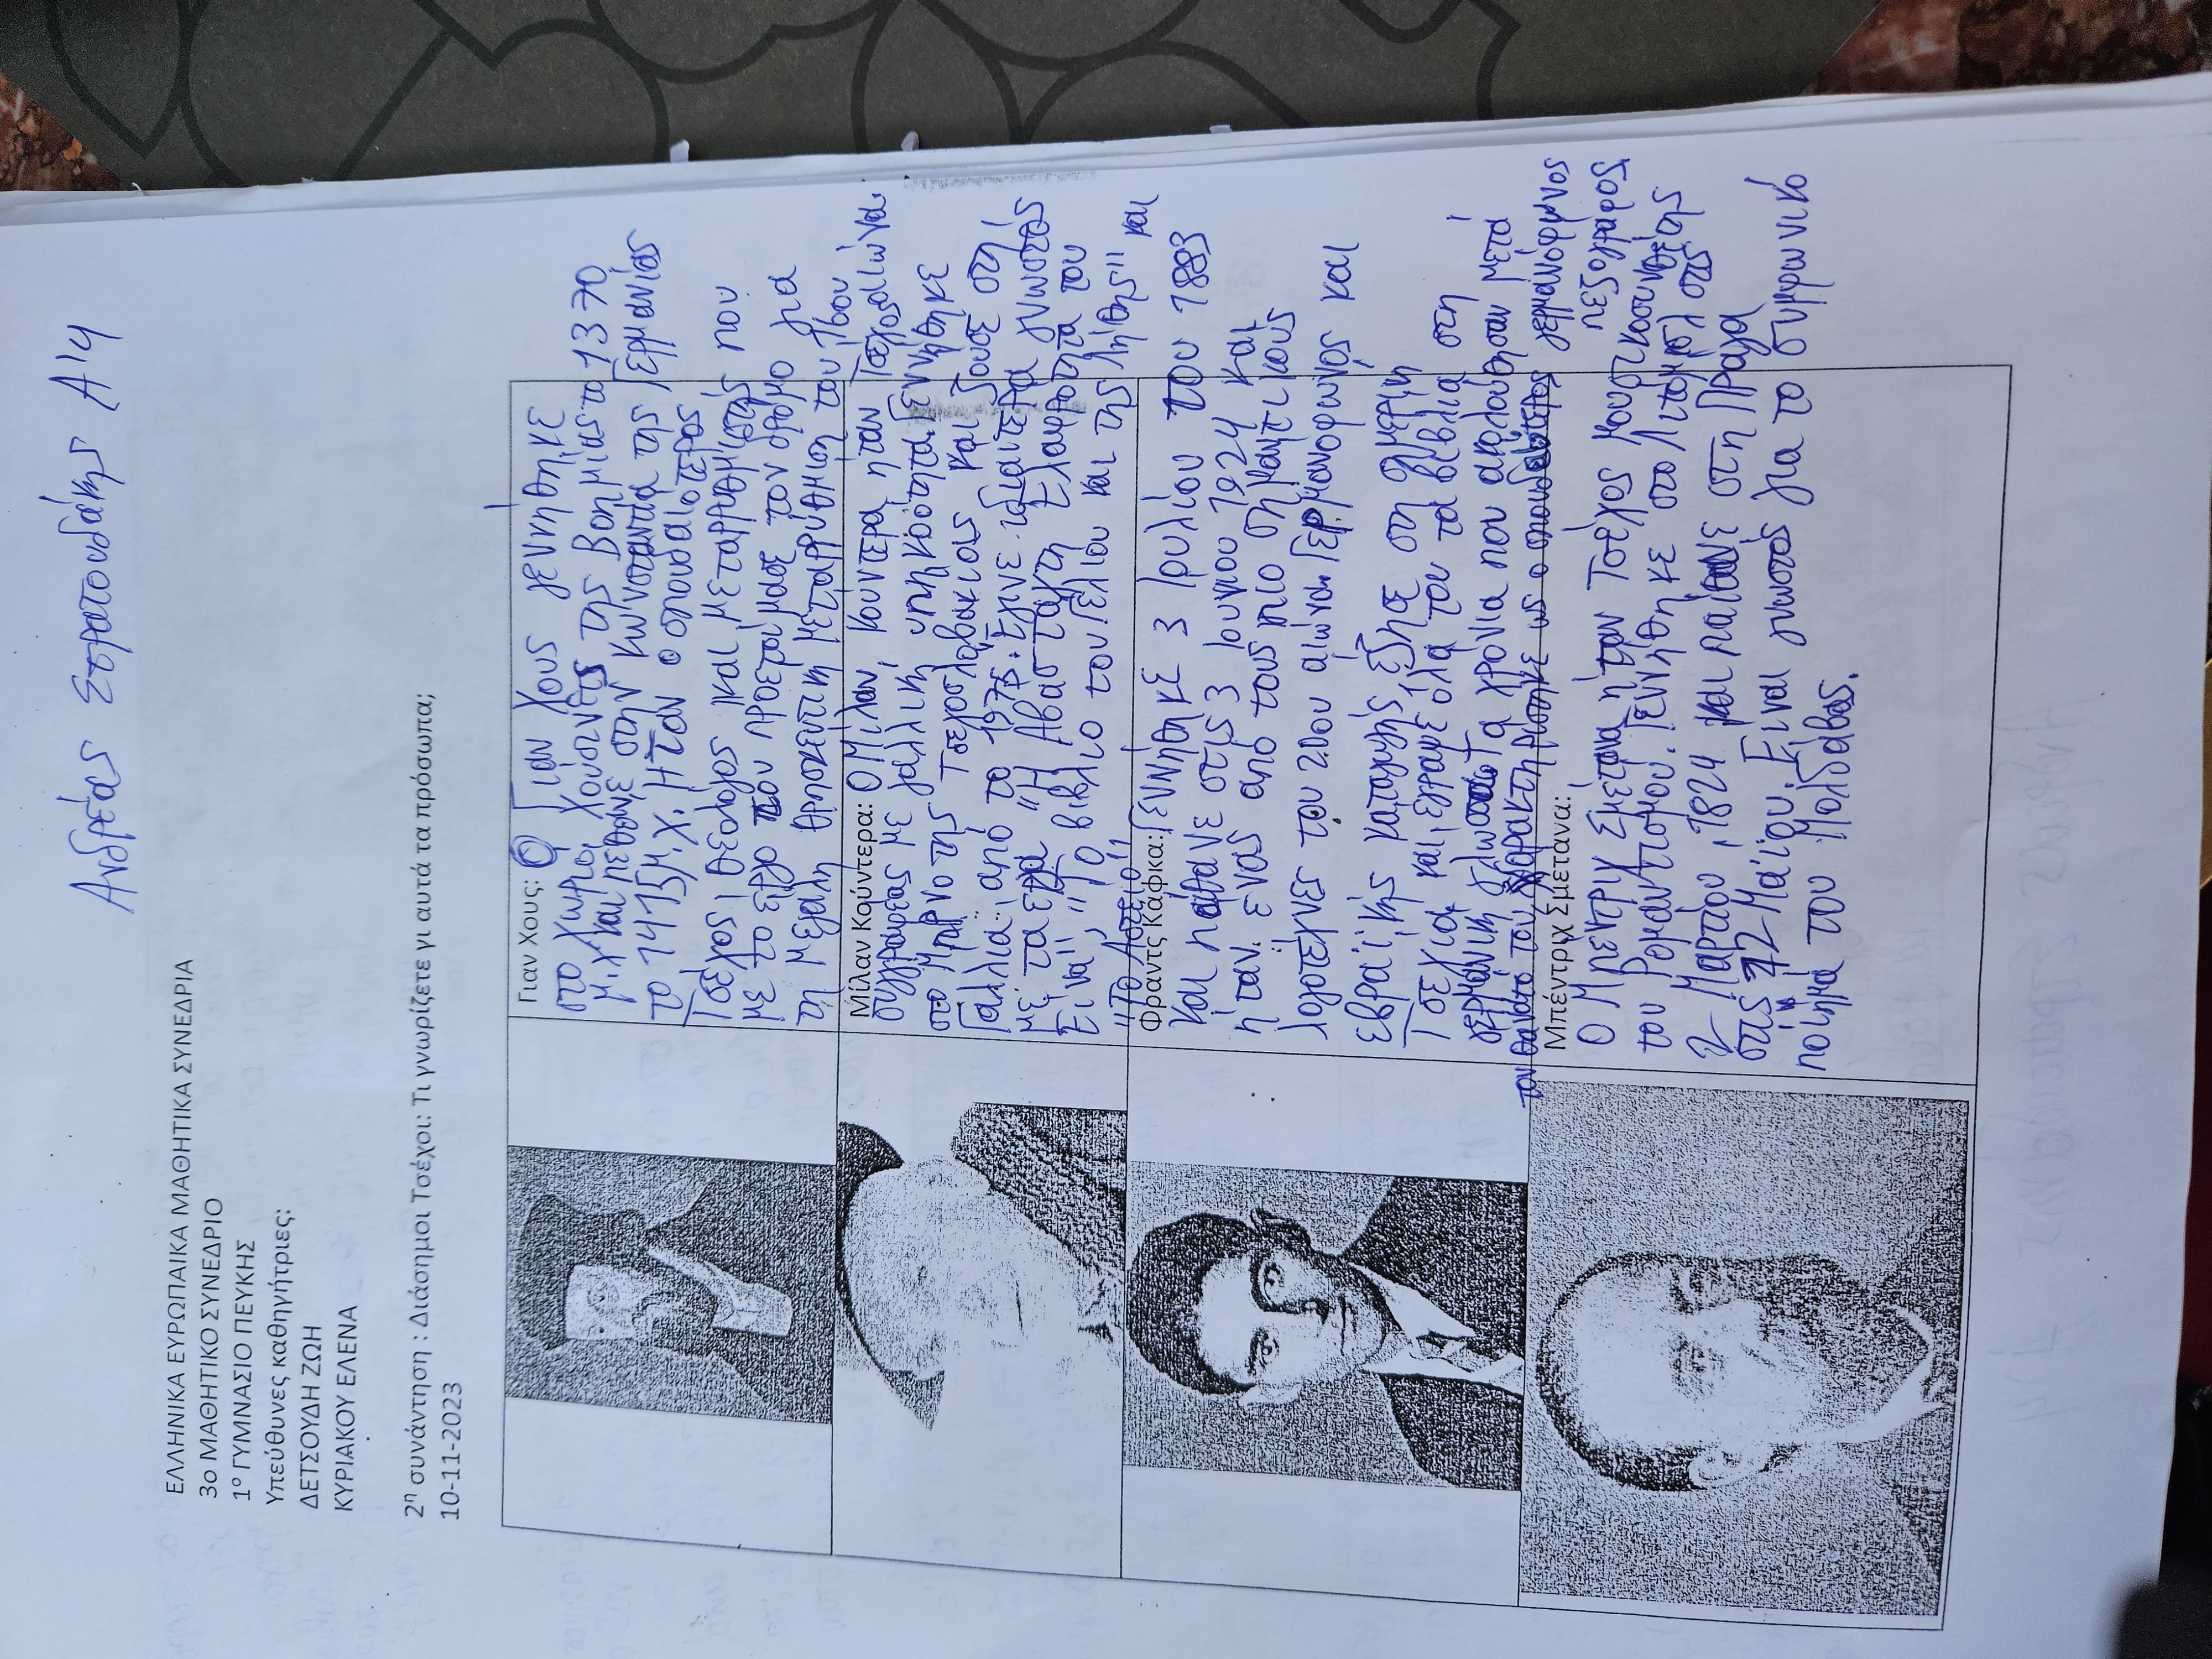 Ανδρέας Στρατουδάκης Α'4
ΕΛΛΗΝΙΚΑ ΕΥΡΩΠΑΙΚΑ ΜΑΘΗΤΙΚΑ ΣΥΝΕΔΡΙΑ
3ο ΜΑΘΗΤΙΚΟ ΣΥΝΕΔΡΙΟ
1º ΓΥΜΝΑΣΙΟ ΠΕΥΚΗΣ
Υπεύθυνες καθηγήτριες:
ΔΕΤΣΟΥΔΗ ΖΩΗ
ΚΥΡΙΑΚΟΥ ΕΛΕΝΑ
2η συνάντηση : Διάσημοι Τσέχοι: Τι γνωρίζετε γι αυτά τα πρόσωπα;
10-11-2023
Γιαν Χους: Ο Γιαν Χους γεννήθηκε
στο χωριό Χούσινετς της Βοημίας το 1370
μ.χ. και πέθανε στην Κωνσταντία της Γερμανίας
το 1415 μ.χ. Ήταν ο σπουδαιότερος
Τσέχος θεολόγος και μεταρρυθμιστής που
με το έργο του προετοίμασε τον δρόμο για
τη μεγάλη θρησκευτική μεταρρύθμιση του 16ου
Μίλαν Κούντερα: Ο Μίλαν Κούντερα ήταν Τσέχος αιώνα.
συγγραφέας με γαλλική υπηκοότητα. Γεννήθηκε
στο Μπρνο της Τσεχοσλοβακίας και ζούσε στη
Γαλλία από το 1975. Έγινε ιδιαίτερα γνωστός
με τα έργα "Η Αβάσταχτη Ελαφρότητα του
Είναι", "Το βιβλίο του Γέλιου και της Λήθης" και
"Το Αστείο"
Φραντς Κάφκα: Γεννήθηκε 3 Ιουλίου του 1883
και πέθανε στις 3 Ιουνίου 1924 και
ήταν ένας από τους πιο σημαντικούς
λογοτέχνες του 20ου αιώνα. Γερμανόφωνος και
εβραϊκής καταγωγής, έζησε στη σημερινή
Τσεχία και έγραψε όλα του τα βιβλία στη
γερμανική γλώσσα. Τα χρόνια που ακολούθησαν μετά
τον θάνατό του χαρακτηρίστηκε ως ο σπουδαιότερος γερμανόφωνος
πεζογράφος
Μπέντριχ Σμέτανα:
Ο Μπέντριχ Σμέτανα ήταν Τσέχος μουσικοσυνθέτης
του Ρομαντισμού. Γεννήθηκε στο Λιτομίσλ στις
2 Μαρτίου, 1824 και πέθανε στη Πράγα
στις 12 Μαΐου. Είναι γνωστός για το συμφωνικό
ποίημα του Μολδάβας.